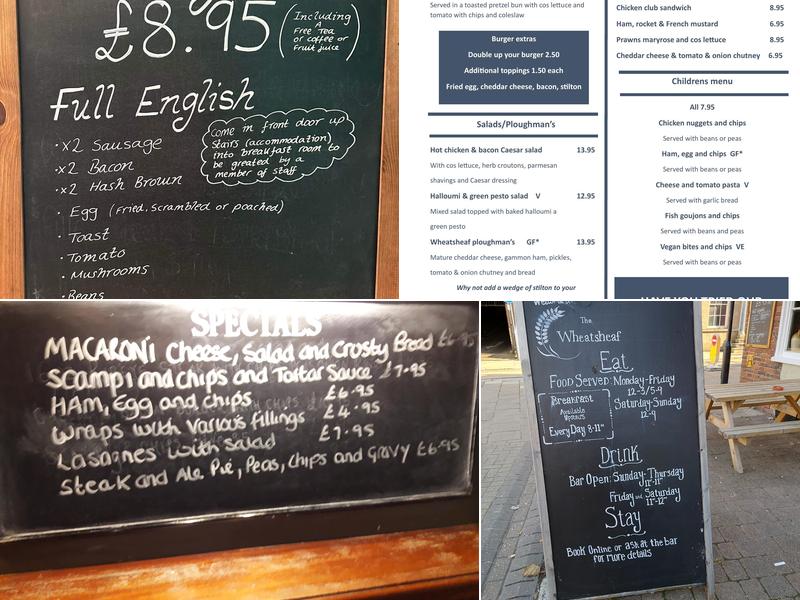 £8.95
(Including
A
Free Tea
or coffee or
Fruit juice)
Full English
·x2 Sausage
·x2 Bacon
·x2 Hash Brown
· Egg (Fried, scrambled or poached)
· Toast
· Tomato
· Mushrooms
· Beans
Come in front door up
stairs (accommodation)
into breakfast room to
be greated by a
member of staff
Served in a toasted pretzel bun with cos lettuce and
tomato with chips and coleslaw
Burger extras
Double up your burger 2.50
Additional toppings 1.50 each
Fried egg, cheddar cheese, bacon, stilton
Salads/Ploughman's
Hot chicken & bacon Caesar salad 13.95
With cos lettuce, herb croutons, parmesan
shavings and Caesar dressing
Halloumi & green pesto salad V 12.95
Mixed salad topped with baked halloumi a
green pesto
Wheatsheaf ploughman's GF* 13.95
Mature cheddar cheese, gammon ham, pickles,
tomato & onion chutney and bread
Why not add a wedge of stilton to your
Chicken club sandwich 8.95
Ham, rocket & French mustard 6.95
Prawns maryrose and cos lettuce 8.95
Cheddar cheese & tomato & onion chutney 6.95
Childrens menu
All 7.95
Chicken nuggets and chips
Served with beans or peas
Ham, egg and chips GF*
Served with beans or peas
Cheese and tomato pasta V
Served with garlic bread
Fish goujons and chips
Served with beans and peas
Vegan bites and chips VE
Served with beans or peas
HAVE YOU TRIED OUR
SPECIALS
MACARONi Cheese, Salad and Crosty Bread £6.95
Scampi and chips and Tartar Sauce £7.95
HAM, Egg and chips £6.95
Wraps with Various fillings £4.95
Lasagnes with Salad £7.95
Steak and Ale Pie, Peas, Chips and Gravy £6.95
The
Wheatsheaf
Eat
Food Served: Monday-Friday
12-3/5-9
Saturday-Sunday
12-9
Breakfast
Available
Upstairs
Every Day 8-11
Drink
Bar Open: Sunday-Thursday
11-11
Friday and Saturday
11-12
Stay
Book Online or ask at the bar
for more details